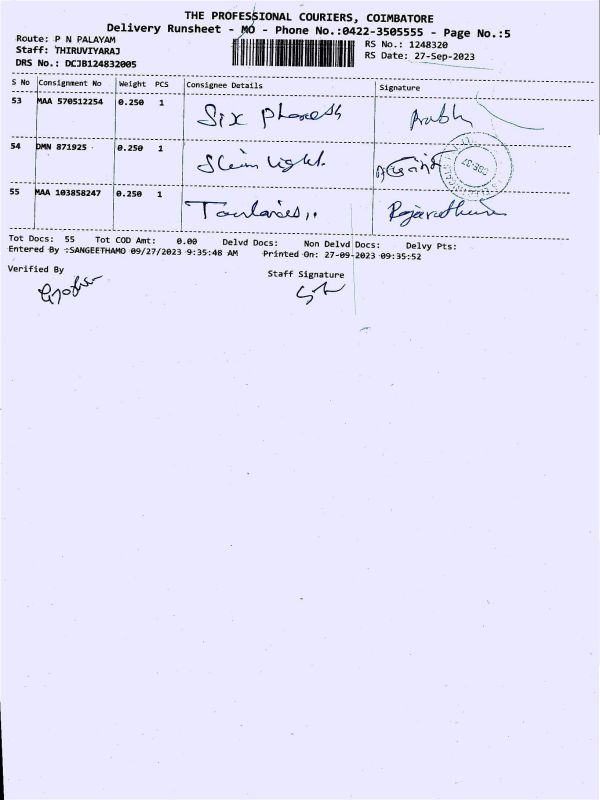 THE PROFESSIONAL COURIERS, COIMBATORE
Delivery Runsheet - MO - Phone No.:0422-3505555 - Page No.:5
Route: P N PALAYAM
RS No.: 1248320
Staff: THIRUVIYARAJ
RS Date: 27-Sep-2023
DRS No.: DCJB124832005
S No Consignment No Weight PCS Consignee Details Signature
53 MAA 570512254 0.250 1 Six Prabhu
54 DMN 871925 0.250 1 Light
55 MAA 103858247 0.250 1
Tot Docs: 55 Tot COD Amt: 0.00 Delvd Docs: Non Delvd Docs: Delvy Pts:
Entered By :SANGEETHAMO 09/27/2023 9:35:48 AM Printed On: 27-09-2023 09:35:52
Verified By
Staff Signature